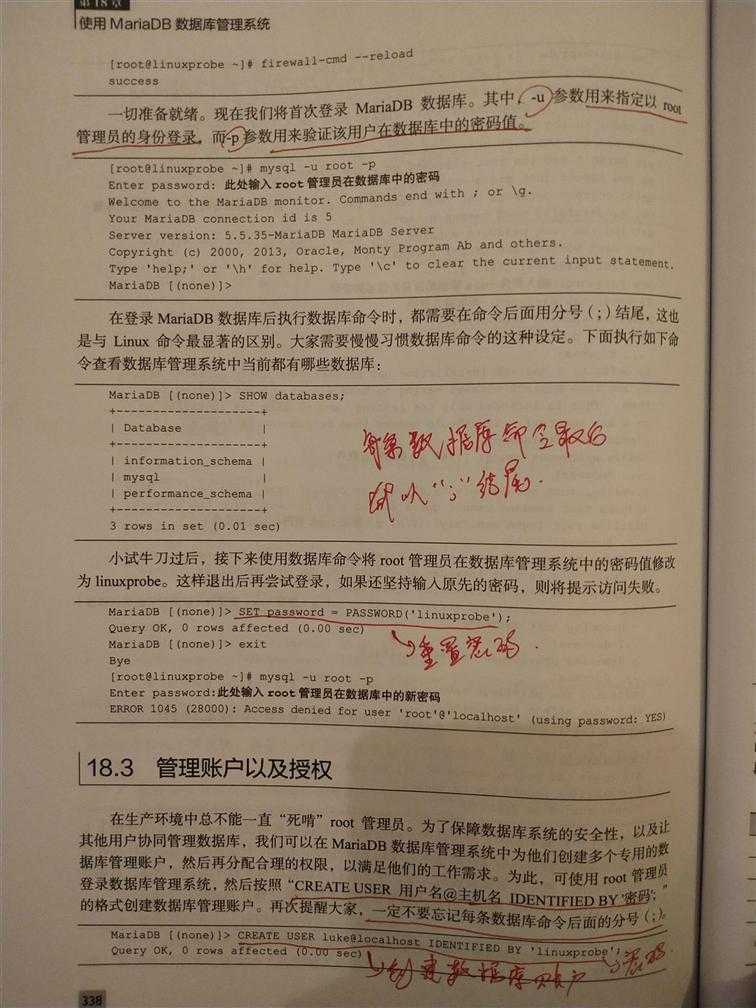 第18章
使用 MariaDB 数据库管理系统
[root@linuxprobe ~]# firewall-cmd --reload
success
一切准备就绪。现在我们将首次登录 MariaDB 数据库。其中，-u 参数用来指定以 root
管理员的身份登录，而-p 参数用来验证该用户在数据库中的密码值。
[root@linuxprobe ~]# mysql -u root -p
Enter password: 此处输入root管理员在数据库中的密码
Welcome to the MariaDB monitor. Commands end with ; or \g.
Your MariaDB connection id is 5
Server version: 5.5.35-MariaDB MariaDB Server
Copyright (c) 2000, 2013, Oracle, Monty Program Ab and others.
Type 'help;' or '\h' for help. Type '\c' to clear the current input statement.
MariaDB [(none)]>
在登录 MariaDB 数据库后执行数据库命令时，都需要在命令后面用分号（;）结尾，这也
是与 Linux 命令最显著的区别。大家需要慢慢习惯数据库命令的这种设定。下面执行如下命
令查看数据库管理系统中当前都有哪些数据库：
MariaDB [(none)]> SHOW databases;
+--------------------+
| Database |
+--------------------+
| information_schema |
| mysql |
| performance_schema |
+--------------------+
3 rows in set (0.01 sec)
每条数据库命令最后
都以“;”结尾.
小试牛刀过后，接下来使用数据库命令将 root 管理员在数据库管理系统中的密码值修改
为 linuxprobe。这样退出后再尝试登录，如果还坚持输入原先的密码，则将提示访问失败。
MariaDB [(none)]> SET password = PASSWORD('linuxprobe');
Query OK, 0 rows affected (0.00 sec)
重置密码.
MariaDB [(none)]> exit
Bye
[root@linuxprobe ~]# mysql -u root -p
Enter password:此处输入root管理员在数据库中的新密码
ERROR 1045 (28000): Access denied for user 'root'@'localhost' (using password: YES)
18.3 管理账户以及授权
在生产环境中总不能一直“死啃”root 管理员。为了保障数据库系统的安全性，以及让
其他用户协同管理数据库，我们可以在 MariaDB 数据库管理系统中为他们创建多个专用的数
据库管理账户，然后再分配合理的权限，以满足他们的工作需求。为此，可使用 root 管理员
登录数据库管理系统，然后按照“CREATE USER 用户名@主机名 IDENTIFIED BY '密码'; ”
的格式创建数据库管理账户。再次提醒大家，一定不要忘记每条数据库命令后面的分号（;）。
MariaDB [(none)]> CREATE USER luke@localhost IDENTIFIED BY 'linuxprobe';
Query OK, 0 rows affected (0.00 sec)
创建数据库账户
密码
338